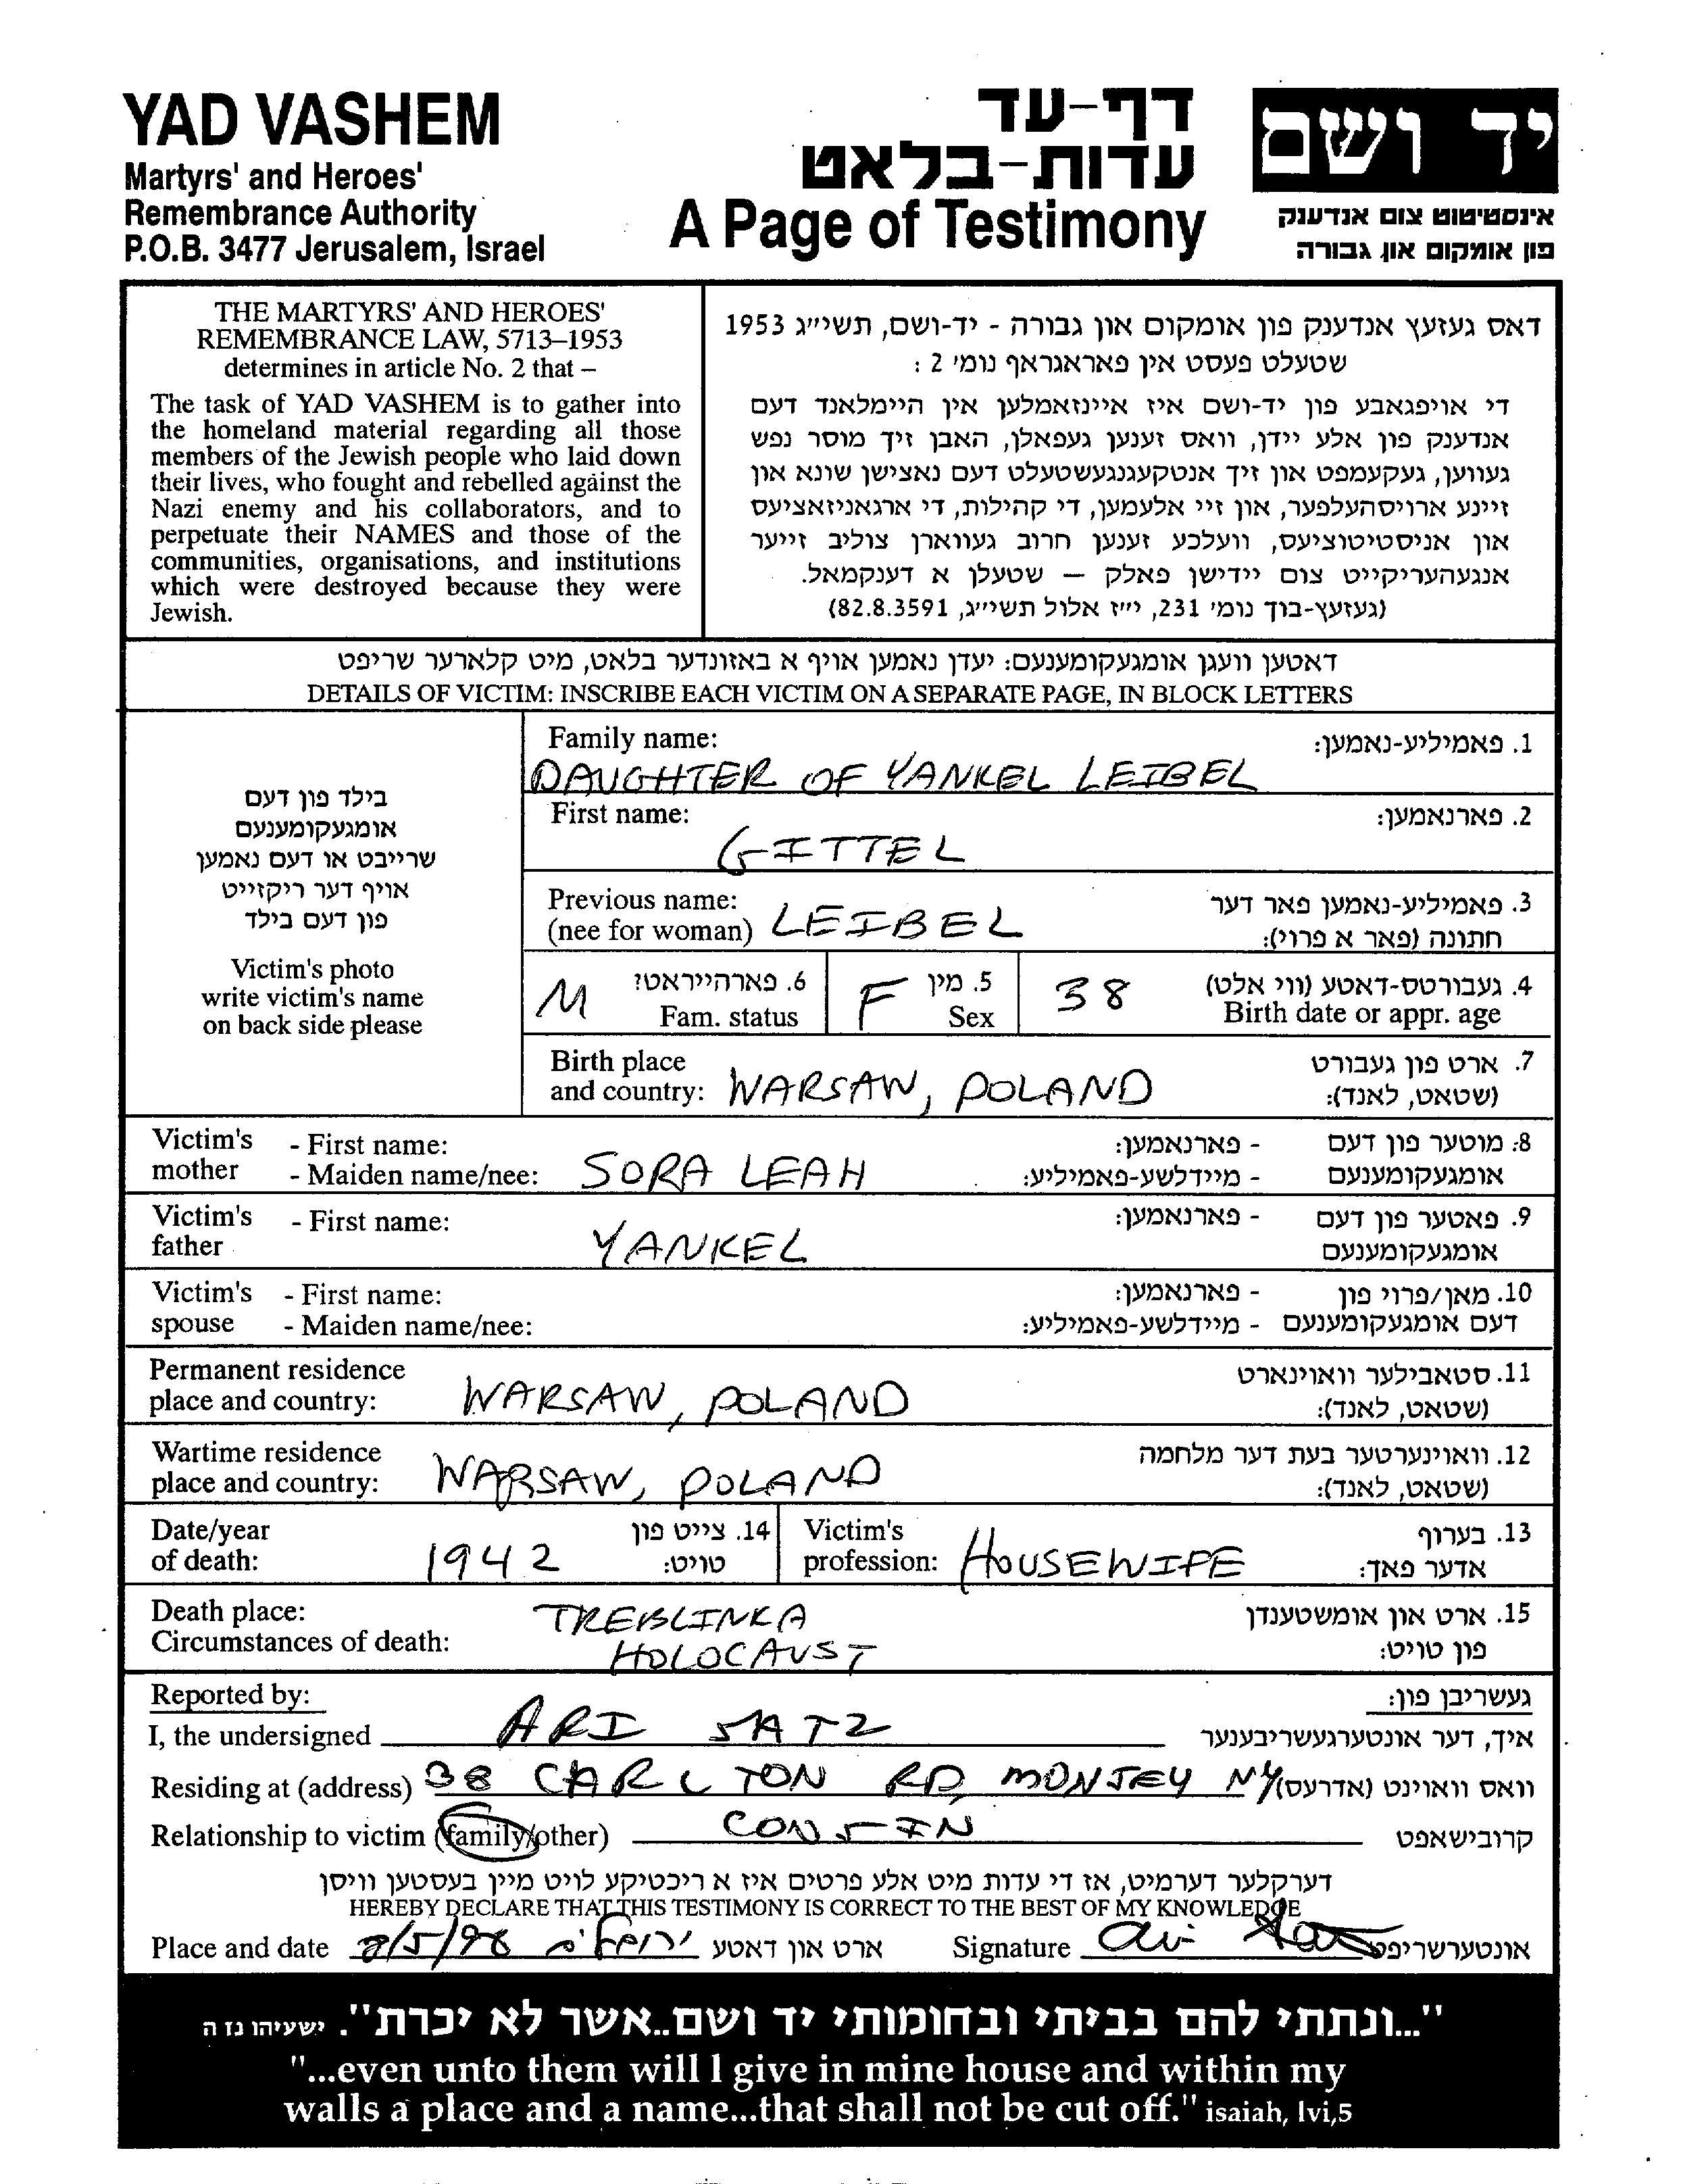 YAD VASHEM
Martyrs' and Heroes'
Remembrance Authority
P.O.B. 3477 Jerusalem, Israel
דף-עד
עדות-בלאט
A Page of Testimony
יד ושם
אינסטיטוט צום אנדענק
פון אומקום און גבורה
THE MARTYRS' AND HEROES'
REMEMBRANCE LAW, 5713–1953
determines in article No. 2 that –
The task of YAD VASHEM is to gather into
the homeland material regarding all those
members of the Jewish people who laid down
their lives, who fought and rebelled against the
Nazi enemy and his collaborators, and to
perpetuate their NAMES and those of the
communities, organisations, and institutions
which were destroyed because they were
Jewish.
דאס געזעץ אנדענק פון אומקום און גבורה - יד-ושם, תשי״ג 1953
שטעלט פעסט אין פאראגראף נומ׳ 2 :
די אויפגאבע פון יד-ושם איז איינזאמלען אין היימלאנד דעם
אנדענק פון אלע יידן, וואס זענען געפאלן, האבן זיך מוסר נפש
געווען, געקעמפט און זיך אנטקעגנגעשטעלט דעם נאצישן שונא און
זיינע ארויסהעלפער, און זיי אלעמען, די קהילות, די ארגאניזאציעס
און אניסטיטוציעס, וועלכע זענען חרוב געווארן צוליב זייער
אנגעהעריקייט צום יידישן פאלק – שטעלן א דענקמאל.
(געזעץ-בוך נומ׳ 231, י״ז אלול תשי״ג, 82.8.3591)
דאטען וועגן אומגעקומענעם: יעדן נאמען אויף א באזונדער בלאט, מיט קלארער שריפט
DETAILS OF VICTIM: INSCRIBE EACH VICTIM ON A SEPARATE PAGE, IN BLOCK LETTERS
בילד פון דעם
אומגעקומענעם
שרייבט או דעם נאמען
אויף דער ריקזייט
פון דעם בילד
Victim's photo
write victim's name
on back side please
Family name: 1. פאמיליע-נאמען:
DAUGHTER OF YANKEL LEIBEL
First name: 2. פארנאמען:
GITTEL
Previous name: 3. פאמיליע-נאמען פאר דער
(nee for woman) LEIBEL חתונה (פאר א פרוי):
M 6. פארהייראטט? F 5. מין 38 4. געבורטס-דאטע (ווי אלט)
Fam. status Sex Birth date or appr. age
Birth place 7. ארט פון געבורט
and country: WARSAW, POLAND (שטאט, לאנד):
Victim's - First name: - פארנאמען: 8: מוטער פון דעם
mother - Maiden name/nee: SORA LEAH - מיידלשע-פאמיליע: אומגעקומענעם
Victim's - First name: - פארנאמען: 9. פאטער פון דעם
father YANKEL אומגעקומענעם
Victim's - First name: - פארנאמען: 10. מאן/פרוי פון
spouse - Maiden name/nee: - מיידלשע-פאמיליע: דעם אומגעקומענעם
Permanent residence 11. סטאבילער וואוינארט
place and country: WARSAW, POLAND (שטאט, לאנד):
Wartime residence 12. וואוינערטער בעת דער מלחמה
place and country: WARSAW, POLAND (שטאט, לאנד):
Date/year 14. צייט פון Victim's 13. בערוף
of death: 1942 טויט: profession: HOUSEWIFE אדער פאך:
Death place: TREBLINKA 15. ארט און אומשטענדן
Circumstances of death: HOLOCAUST פון טויט:
Reported by: געשריבן פון:
I, the undersigned ARI SATZ איך, דער אונטערגעשריבענער
Residing at (address) 38 CARLTON RD MONSEY NY וואס וואוינט (אדרעס)
Relationship to victim (family/other) COUSIN קרובישאפט
דערקלער דערמיט, אז די עדות מיט אלע פרטים איז א ריכטיקע לויט מיין בעסטען וויסן
HEREBY DECLARE THAT THIS TESTIMONY IS CORRECT TO THE BEST OF MY KNOWLEDGE
Place and date /5/98 ירושלים ארט און דאטע Signature אונטערשריפט
"...ונתתי להם בביתי ובחומותי יד ושם..אשר לא יכרת". ישעיהו נז ה
"...even unto them will I give in mine house and within my
walls a place and a name...that shall not be cut off." isaiah, lvi,5